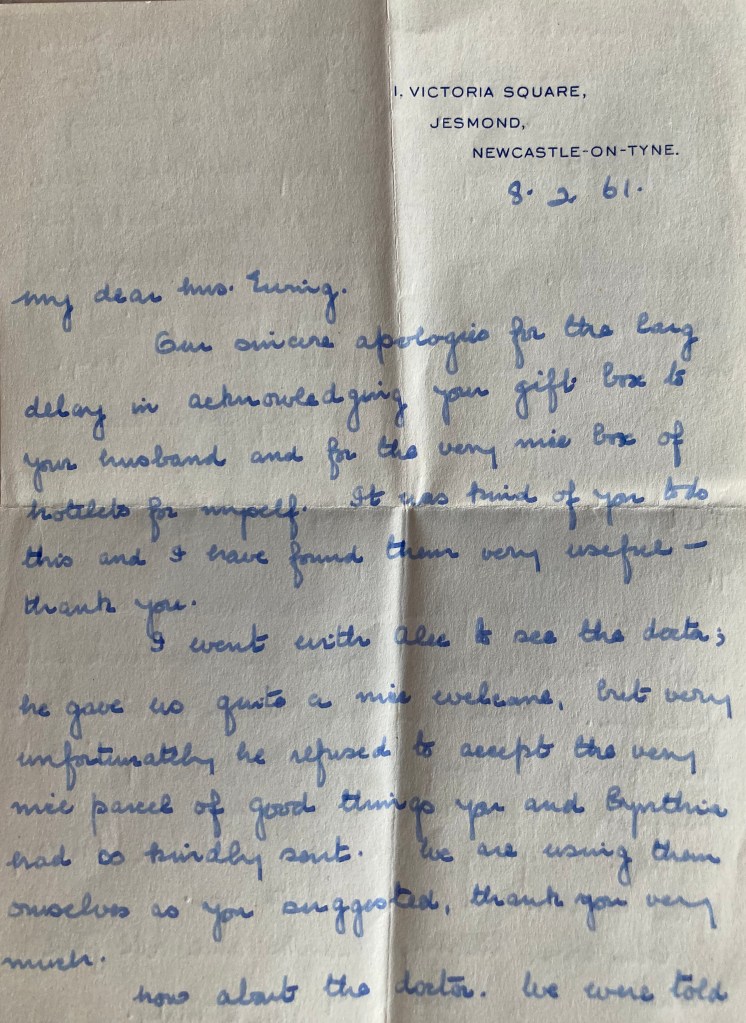 1. VICTORIA SQUARE,
JESMOND,
NEWCASTLE-ON-TYNE.
8. 2 61.
My dear Mrs.
Our sincere apologies for the long
delay in acknowledging your gift box to
your husband and for the very nice box of
for myself. It was kind of you to do
this and I have found them very useful –
thank you.
I went with Alec to see the doctor;
he gave us quite a nice welcome, but very
unfortunately he refused to accept the very
nice parcel of good things you and Cynthia
had so kindly sent. We are using them
ourselves as you suggested, thank you very
much.
Now about the doctor. We were told